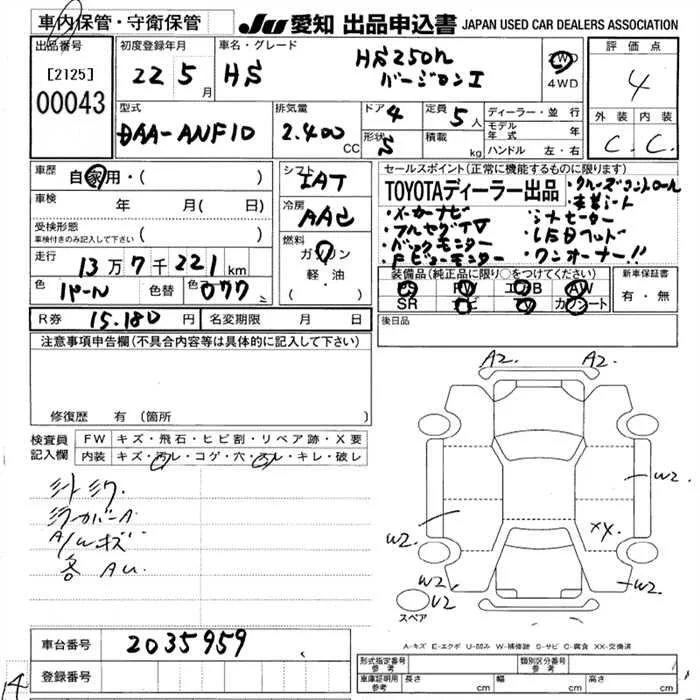 車内保管・守衛保管
JU 愛知 出品申込書 JAPAN USED CAR DEALERS ASSOCIATION
出品番号
[2125]
00043
初度登録年月
22 5月
車名・グレード
HS HS250h
バージョンI
2WD
4WD
評価点
4
外装 内装
C. C.
型式
DAA-ANF10
排気量
2.400 CC
ドア 4
形状 5
定員 5人
積載 kg
ディーラー・並行
モデル年式 年
ハンドル 左・右
車歴 自家用・( )
車検 年 月( 日)
受検形態
車検付きのみ記入して下さい ( )
走行
13万7千221km
色 パール 色替 077
シフト IAT
冷房 AAC
燃料
ガソリン
軽・油
( )
セールスポイント(正常に機能するものに限ります)
TOYOTAディーラー出品
・クルーズコントロール
・本革シート
・メーカーナビ ・シートヒーター
・フルセグTV ・LEDヘッド
・バックモニター ・ワンオーナー!!
・Fビューモニター
装備品(純正品に限り○をつけてください)
PS PW エアB AW
SR ナビ TV カワシート
新車保証書
有・無
後日品
R券 15.180円 名変期限 月 日
注意事項申告欄(不具合内容等は具体的に記入して下さい)
修復歴 有(箇所 )
検査員記入欄
FW キズ・飛石・ヒビ割・リペア跡・X要
内装 キズ・汚レ・コゲ・穴・スレ・キレ・破レ
ミラーカバーA
A/Wキズ
各AU.
A2. A2.
W2.
W2.
XX.
W2.
W2.
U2
スペア
A-キズ E-エクボ U-凹み W-補修跡 S-サビ C-腐食 XX-交換済
車台番号 2035959
登録番号
14
形式指定番号参考 類別区分番号参考
車庫証明用参考 長さ cm 幅 cm 高さ cm